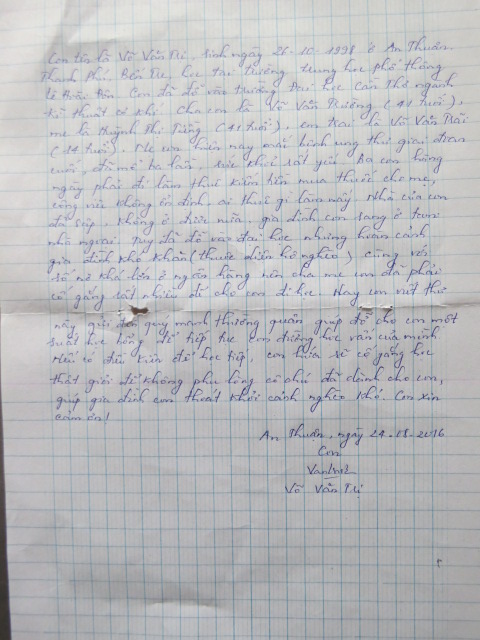 Con tên là Võ Văn Trị, sinh ngày 26-10-1998 ở An Thuận
Thạnh Phú, Bến Tre, học tại trường trung học phổ thông
Lê Hoài Đôn. Con đã đỗ vào trường Đại học Cần Thơ ngành
Kĩ thuật cơ khí. Cha con là Võ Văn Triêng (41 tuổi),
mẹ là Huỳnh Thị Tiếng (41 tuổi), em trai là Võ Văn Trãi
(14 tuổi). Mẹ con hiện nay mắc bệnh ung thư giai đoạn
cuối, đã mổ ba lần, sức khoẻ rất yếu. Ba con hằng
ngày phải đi làm thuê kiếm tiền mua thuốc cho mẹ,
công việc không ổn định, ai thuê gì làm nấy. Nhà của con
đã sập, không ở được nữa, gia đình con sang ở
nhà ngoại. Tuy đã đỗ vào đại học nhưng hoàn cảnh
gia đình khó khăn (thuộc diện hộ nghèo) cùng với
số nợ khá lớn ở ngân hàng nên cha mẹ con đã phải
cố gắng rất nhiều để cho con đi học. Nay con viết thư
này gửi đến quý mạnh thường quân giúp đỡ cho con một
suất học bổng để tiếp tục con đường học vấn của mình.
Nếu có điều kiện để học tiếp, con hứa sẽ cố gắng học
thật giỏi để không phụ lòng cô chú đã dành cho con,
giúp gia đình con thoát khỏi cảnh nghèo khó. Con xin
cảm ơn!
An Thuận, ngày 24-08-2016
Con
Võ Văn Trị